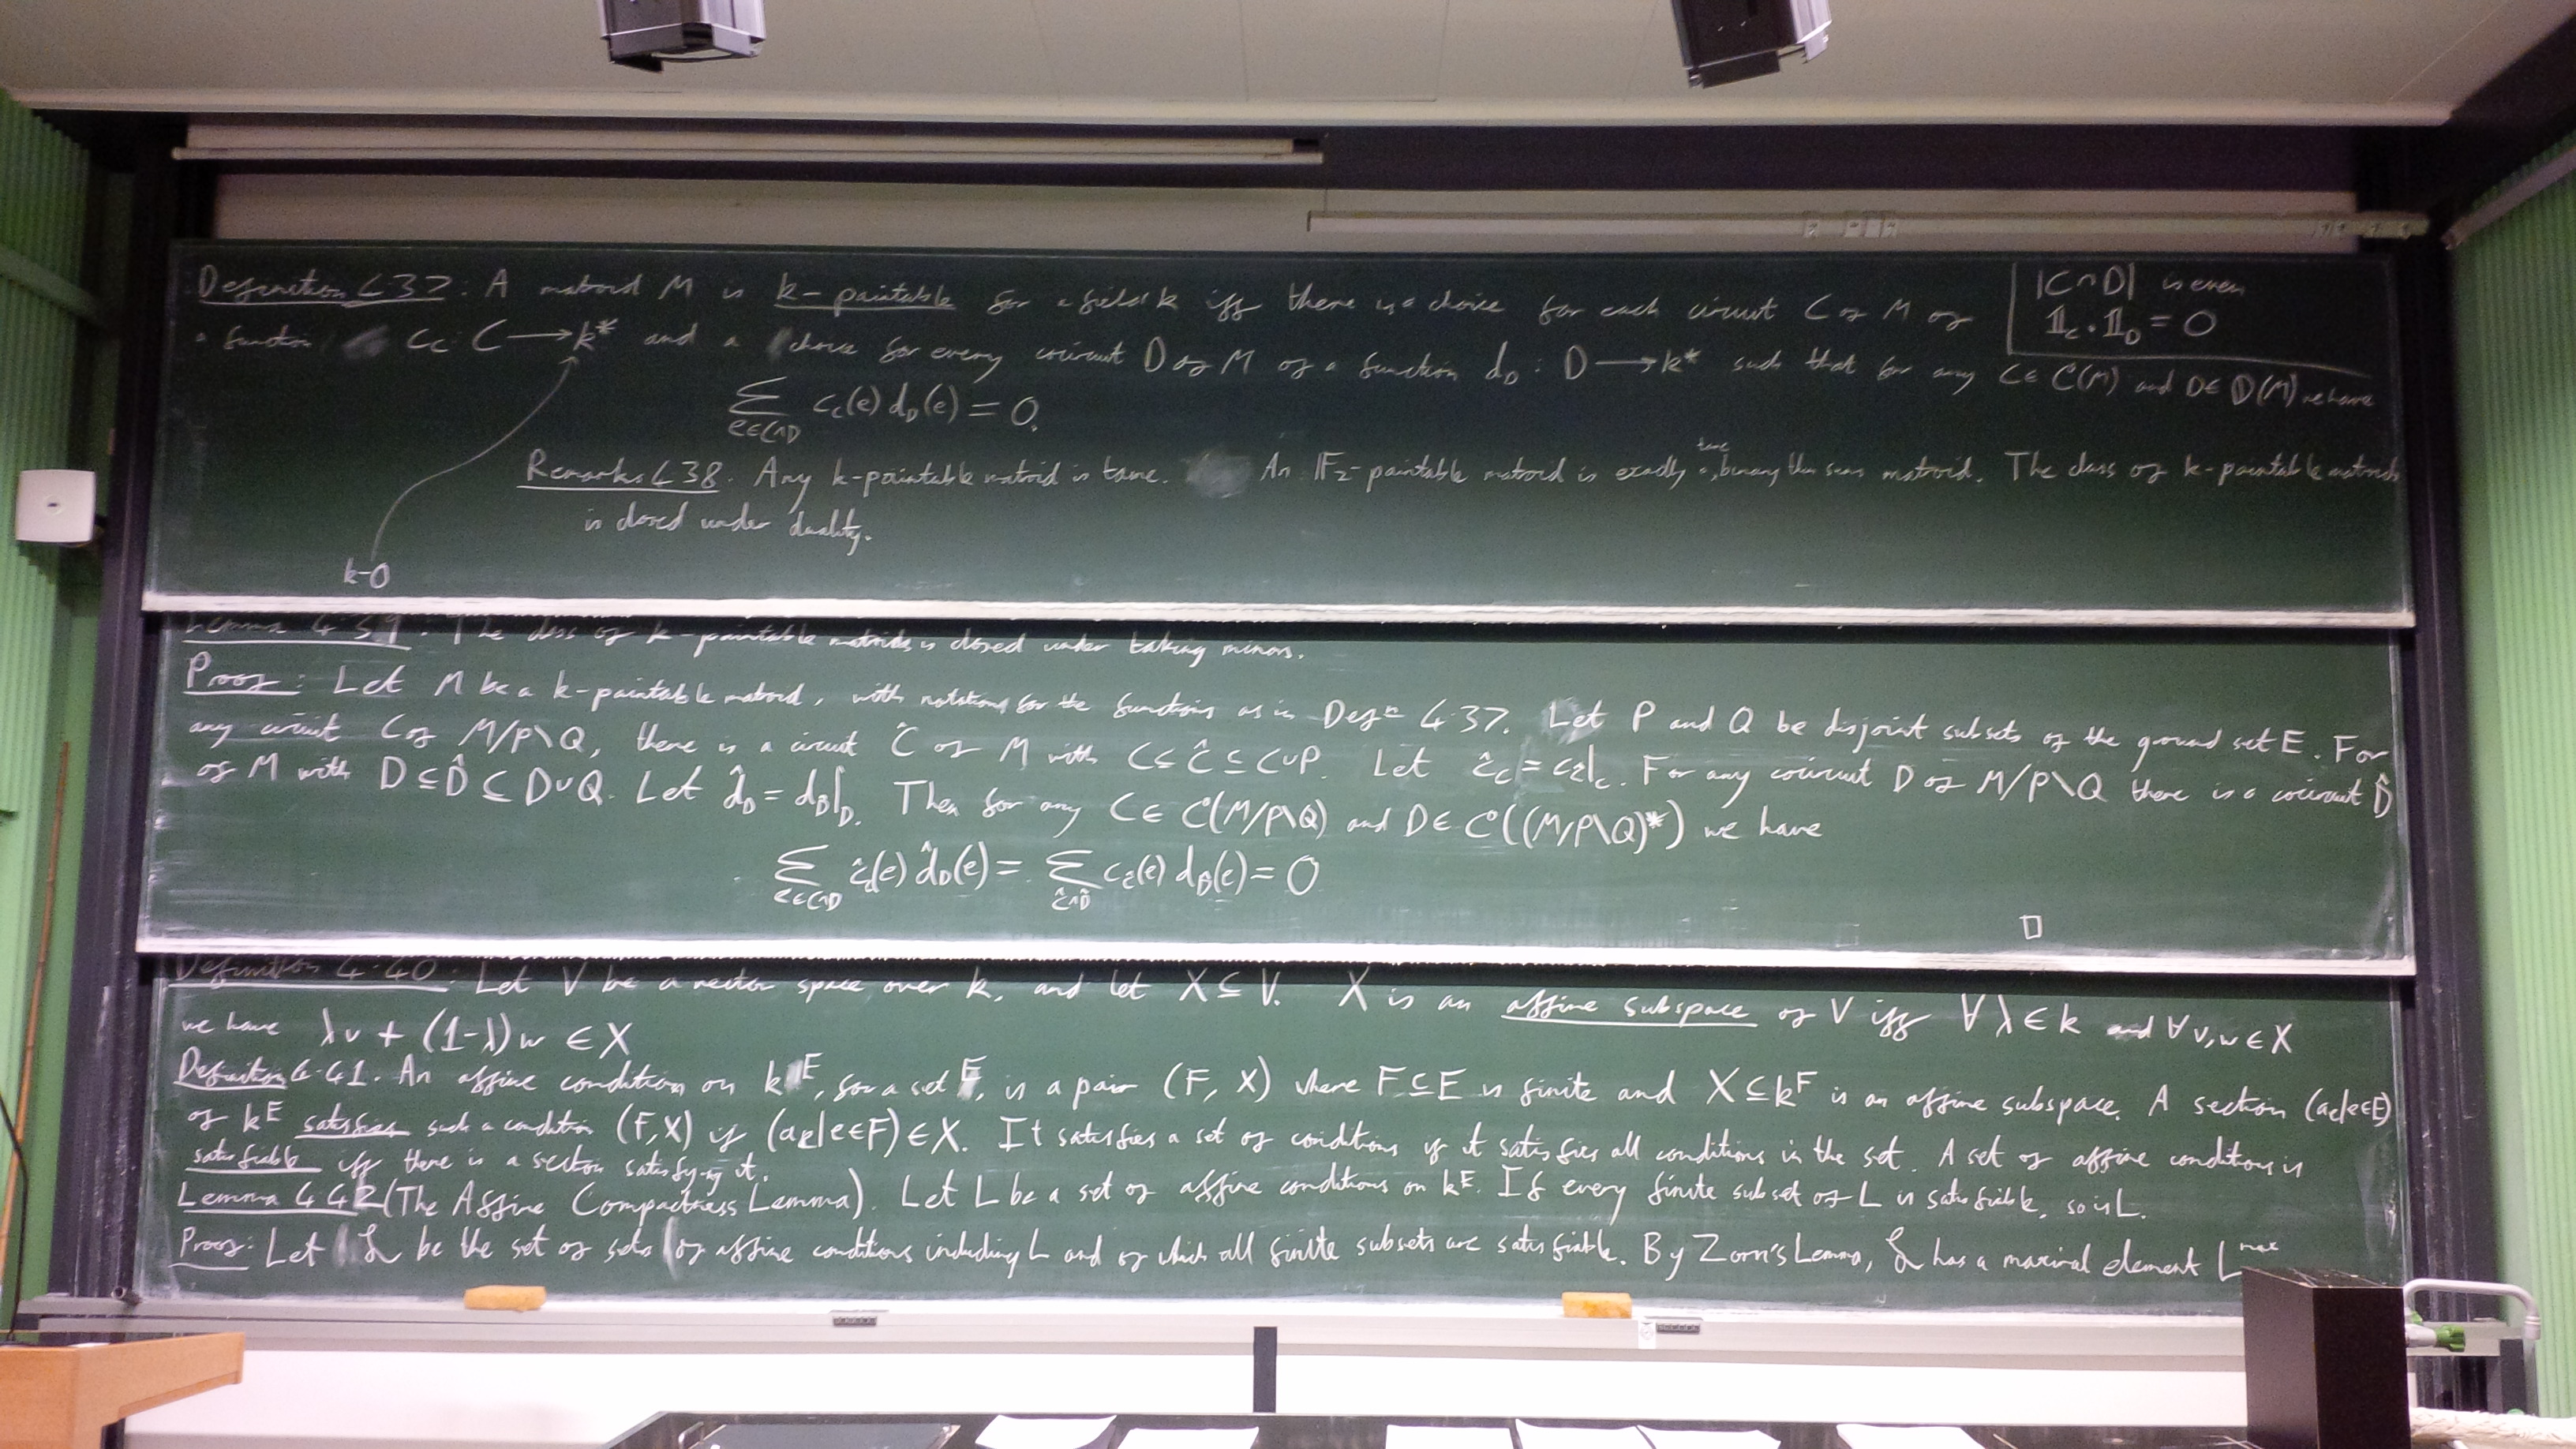 Definition 4.37: A matroid M is k-paintable for a field k iff there is a choice for each circuit C of M of
a function c_C: C ⟶ k* and a choice for every cocircuit D of M of a function d_D: D ⟶ k* such that for any C ∈ C(M) and D ∈ D(M) we have
|C∩D| is even
𝟙_C · 𝟙_D = 0
∑_{e∈C∩D} c_C(e) d_D(e) = 0.
Remarks 4.38. Any k-paintable matroid is tame. An 𝔽₂-paintable matroid is exactly a tame binary thin sums matroid. The class of k-paintable matroids
is closed under duality.
k-0
Lemma 4.39: The class of k-paintable matroids is closed under taking minors.
Proof: Let M be a k-paintable matroid, with notations for the functions as in Defⁿ 4.37. Let P and Q be disjoint subsets of the ground set E. For
any circuit C of M/P\Q, there is a circuit Ĉ of M with C ⊆ Ĉ ⊆ C∪P. Let ĉ_C = c_Ĉ|_C. For any cocircuit D of M/P\Q there is a cocircuit D̂
of M with D ⊆ D̂ ⊆ D∪Q. Let d̂_D = d_D̂|_D. Then for any C ∈ C(M/P\Q) and D ∈ C((M/P\Q)*) we have
∑_{e∈C∩D} ĉ_C(e) d̂_D(e) = ∑_{Ĉ∩D̂} c_Ĉ(e) d_D̂(e) = 0
□
Definition 4.40: Let V be a vector space over k, and let X ⊆ V. X is an affine subspace of V iff ∀λ∈k and ∀v,w∈X
we have λv + (1-λ)w ∈ X
Definition 4.41. An affine condition on k^E, for a set E, is a pair (F, X) where F⊆E is finite and X⊆k^F is an affine subspace. A section (a_e|e∈E)
of k^E satisfies such a condition (F,X) if (a_e|e∈F)∈X. It satisfies a set of conditions if it satisfies all conditions in the set. A set of affine conditions is
satisfiable iff there is a section satisfying it.
Lemma 4.42 (The Affine Compactness Lemma). Let L be a set of affine conditions on k^E. If every finite subset of L is satisfiable, so is L.
Proof: Let ℒ be the set of sets of affine conditions including L and of which all finite subsets are satisfiable. By Zorn's Lemma, ℒ has a maximal element L^max